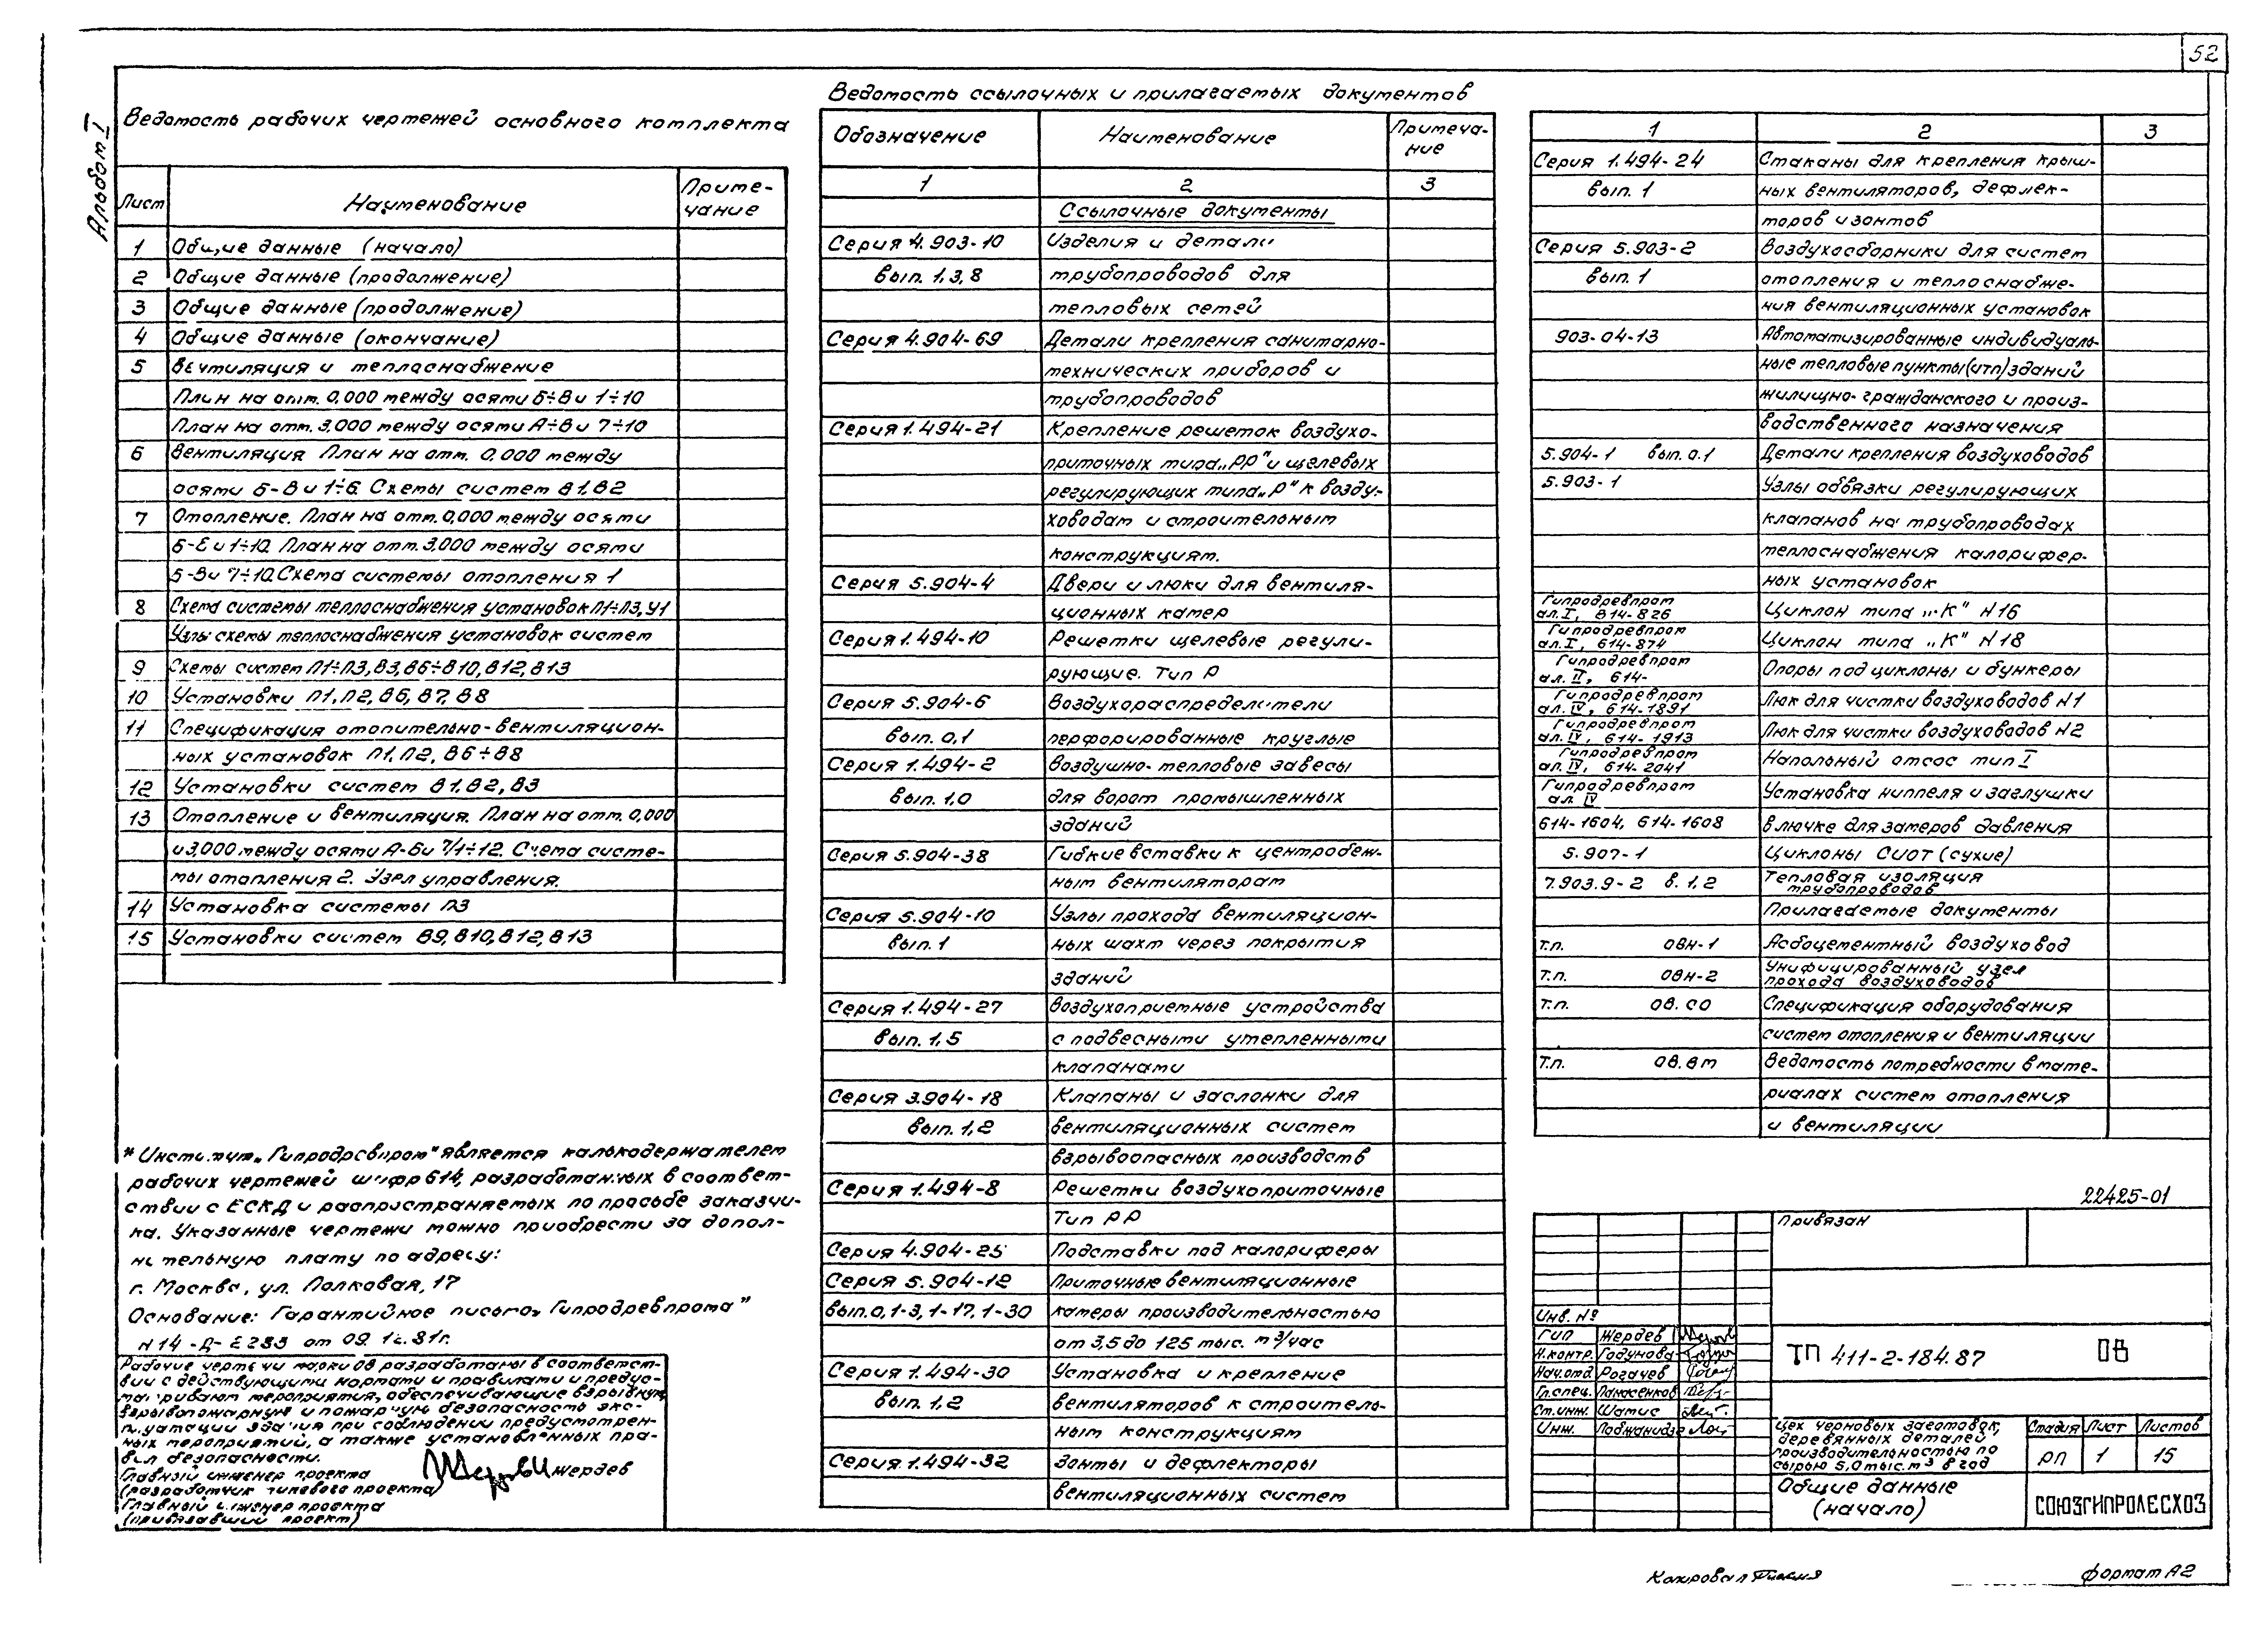 52
Альбом I
Ведомость рабочих чертежей основного комплекта
Лист Наименование Приме-
чание
1 Общие данные (начало)
2 Общие данные (продолжение)
3 Общие данные (продолжение)
4 Общие данные (окончание)
5 Вентиляция и теплоснабжение
План на отм. 0,000 между осями Б÷В и 1÷10
План на отм. 3,000 между осями А÷В и 7÷10
6 Вентиляция План на отм. 0,000 между
осями Б-В и 1÷6. Схемы систем В1, В2
7 Отопление. План на отм. 0,000 между осями
Б-Е и 1÷10. План на отм. 3,000 между осями
Б-В и 7÷10. Схема системы отопления 1
8 Схема системы теплоснабжения установок П1÷П3, У1
Узлы схемы теплоснабжения установок систем
9 Схемы систем П1÷П3, В3, В6÷В10, В12, В13
10 Установки П1, П2, В6, В7, В8
11 Спецификация отопительно-вентиляцион-
ных установок П1, П2, В6÷В8
12 Установки систем В1, В2, В3
13 Отопление и вентиляция. План на отм. 0,000
и 3,000 между осями А-Б и 7/1÷12. Схема систе-
мы отопления 2. Узел управления.
14 Установка системы П3
15 Установки систем В9, В10, В12, В13
* Институт „Гипродревпром" является калькодержателем
рабочих чертежей шифр 614, разработанных в соответ-
ствии с ЕСКД и распространяемых по просьбе заказчи-
ка. Указанные чертежи можно приобрести за допол-
нительную плату по адресу:
г. Москва, ул. Полковая, 17
Основание: Гарантийное письмо „Гипродревпрома"
N14-Д- от 09 12. 81г.
Рабочие чертежи марки ОВ разработаны в соответст-
вии с действующими нормами и правилами и предус-
матривают мероприятия, обеспечивающие взрывную,
взрывопожарную и пожарную безопасность экс-
плуатации здания при соблюдении предусмотрен-
ных мероприятий, а также установленных пра-
вил безопасности.
Главный инженер проекта
(разработчик типового проекта) Жердев
Главный инженер проекта
(привязавший проект)
Ведомость ссылочных и прилагаемых документов
Обозначение Наименование Примеча-
ние
1 2 3
Ссылочные документы
Серия 4.903-10 Изделия и детали
вып. 1,3,8 трубопроводов для
тепловых сетей
Серия 4.904-69 Детали крепления санитарно-
технических приборов и
трубопроводов
Серия 1.494-21 Крепление решеток воздухо-
приточных типа „РР" и щелевых
регулирующих типа „Р" к возду-
ховодам и строительным
конструкциям.
Серия 5.904-4 Двери и люки для вентиля-
ционных камер
Серия 1.494-10 Решетки щелевые регули-
рующие. Тип Р
Серия 5.904-6 Воздухораспределители
вып. 0,1 перфорированные круглые
Серия 1.494-2 Воздушно-тепловые завесы
вып. 1,0 для ворот промышленных
зданий
Серия 5.904-38 Гибкие вставки к центробеж-
ным вентиляторам
Серия 5.904-10 Узлы прохода вентиляцион-
вып. 1 ных шахт через покрытия
зданий
Серия 1.494-27 Воздухоприемные устройства
вып. 1,5 с подвесными утепленными
клапанами
Серия 3.904-18 Клапаны и заслонки для
вып. 1,2 вентиляционных систем
взрывоопасных производств
Серия 1.494-8 Решетки воздухоприточные
Тип РР
Серия 4.904-25 Подставки под калориферы
Серия 5.904-12 Приточные вентиляционные
вып. 0, 1-3, 1-17, 1-30 камеры производительностью
от 3,5 до 125 тыс. м³/час
Серия 1.494-30 Установка и крепление
вып. 1,2 вентиляторов к строитель-
ным конструкциям
Серия 1.494-32 Зонты и дефлекторы
вентиляционных систем
1 2 3
Серия 1.494-24 Стаканы для крепления крыш-
вып. 1 ных вентиляторов, дефлек-
торов и зонтов
Серия 5.903-2 Воздухосборники для систем
вып. 1 отопления и теплоснабже-
ния вентиляционных установок
903-04-13 Автоматизированные индивидуаль-
ные тепловые пункты (ИТП) зданий
жилищно-гражданского и произ-
водственного назначения
5.904-1 вып. 0.1 Детали крепления воздуховодов
5.903-1 Узлы обвязки регулирующих
клапанов на трубопроводах
теплоснабжения калорифер-
ных установок
Гипродревпром
ал. I, 614-826 Циклон типа „К" N16
Гипродревпром
ал. I, 614-874 Циклон типа „К" N18
Гипродревпром
ал. II, 614- Опоры под циклоны и бункеры
Гипродревпром
ал. IV, 614-1891 Люк для чистки воздуховодов N1
Гипродревпром
ал. IV, 614-1913 Люк для чистки воздуховодов N2
Гипродревпром
ал. IV, 614-2041 Напольный отсос тип I
Гипродревпром
ал. IV Установка ниппеля и заглушки
614-1604, 614-1608 в лючке для замеров давления
5.907-1 Циклоны СИОТ (сухие)
7.903.9-2 в. 1,2 Тепловая изоляция
трубопроводов
Прилагаемые документы
т.п. ОВН-1 Асбоцементный воздуховод
т.п. ОВН-2 Унифицированный узел
прохода воздуховодов
т.п. ОВ.СО Спецификация оборудования
систем отопления и вентиляции
т.п. ОВ.ВМ Ведомость потребности в мате-
риалах систем отопления
и вентиляции
22425-01
Привязан
Инв. №
ГИП Жердев
Н.контр. Годунова
Нач.отд Рогачев
Гл.спец. Панасенков
Ст.инж. Шатис
Инж.
ТП 411-2-184.87 ОВ
Цех черновых заготовок,
деревянных деталей
производительностью по
сырью 5,0 тыс. м³ в год
Стадия Лист Листов
РП 1 15
Общие данные
(начало)
СОЮЗГИПРОЛЕСХОЗ
Копировал
Формат А2